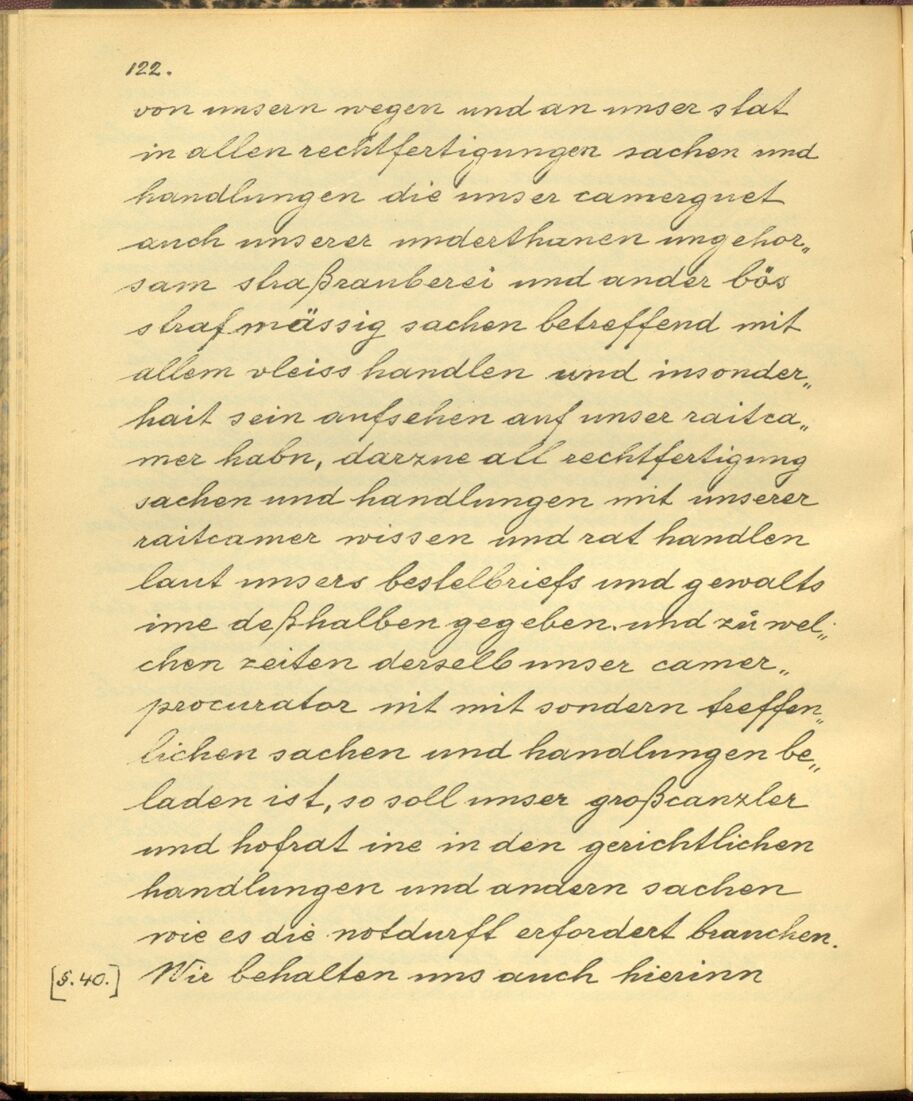 122.
von unsern wegen und an unser stat
in allen rechtfertigungen sachen und
handlungen die unser camerguet
auch unserer underthanen ungehor„
sam straßrauberei und ander bös
strafmässig sachen betreffend mit
allem vleiss handlen und insonder„
hait sein aufsehen auf unser raitca„
mer habn, darzue all rechtfertigung
sachen und handlungen mit unserer
raitcamer wissen und rat handlen
laut unsers bestelbriefs und gewalts
ime deßhalben gegeben. und zů wel„
chen zeiten derselb unser camer„
procurator nit mit sondern treffen„
lichen sachen und handlungen be„
laden ist, so soll unser großcanzler
und hofrat ine in den gerichtlichen
handlungen und andern sachen
wie es die notdurft erfordert brauchen.
[§. 40.] Wir behalten uns auch hierinn